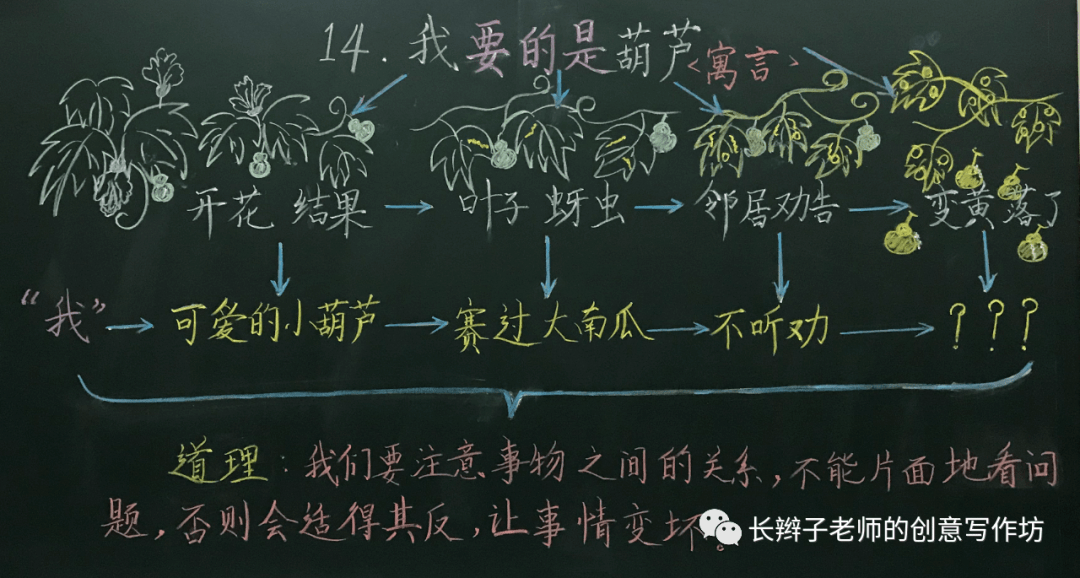 14.我要的是葫芦<寓言>
开花 结果 → 叶子 蚜虫 → 邻居劝告 → 变黄 落了
“我” → 可爱的小葫芦 → 赛过大南瓜 → 不听劝 → ? ? ?
道理:我们要注意事物之间的关系,不能片面地看问
题,否则会适得其反,让事情变坏。
长辫子老师的创意写作坊